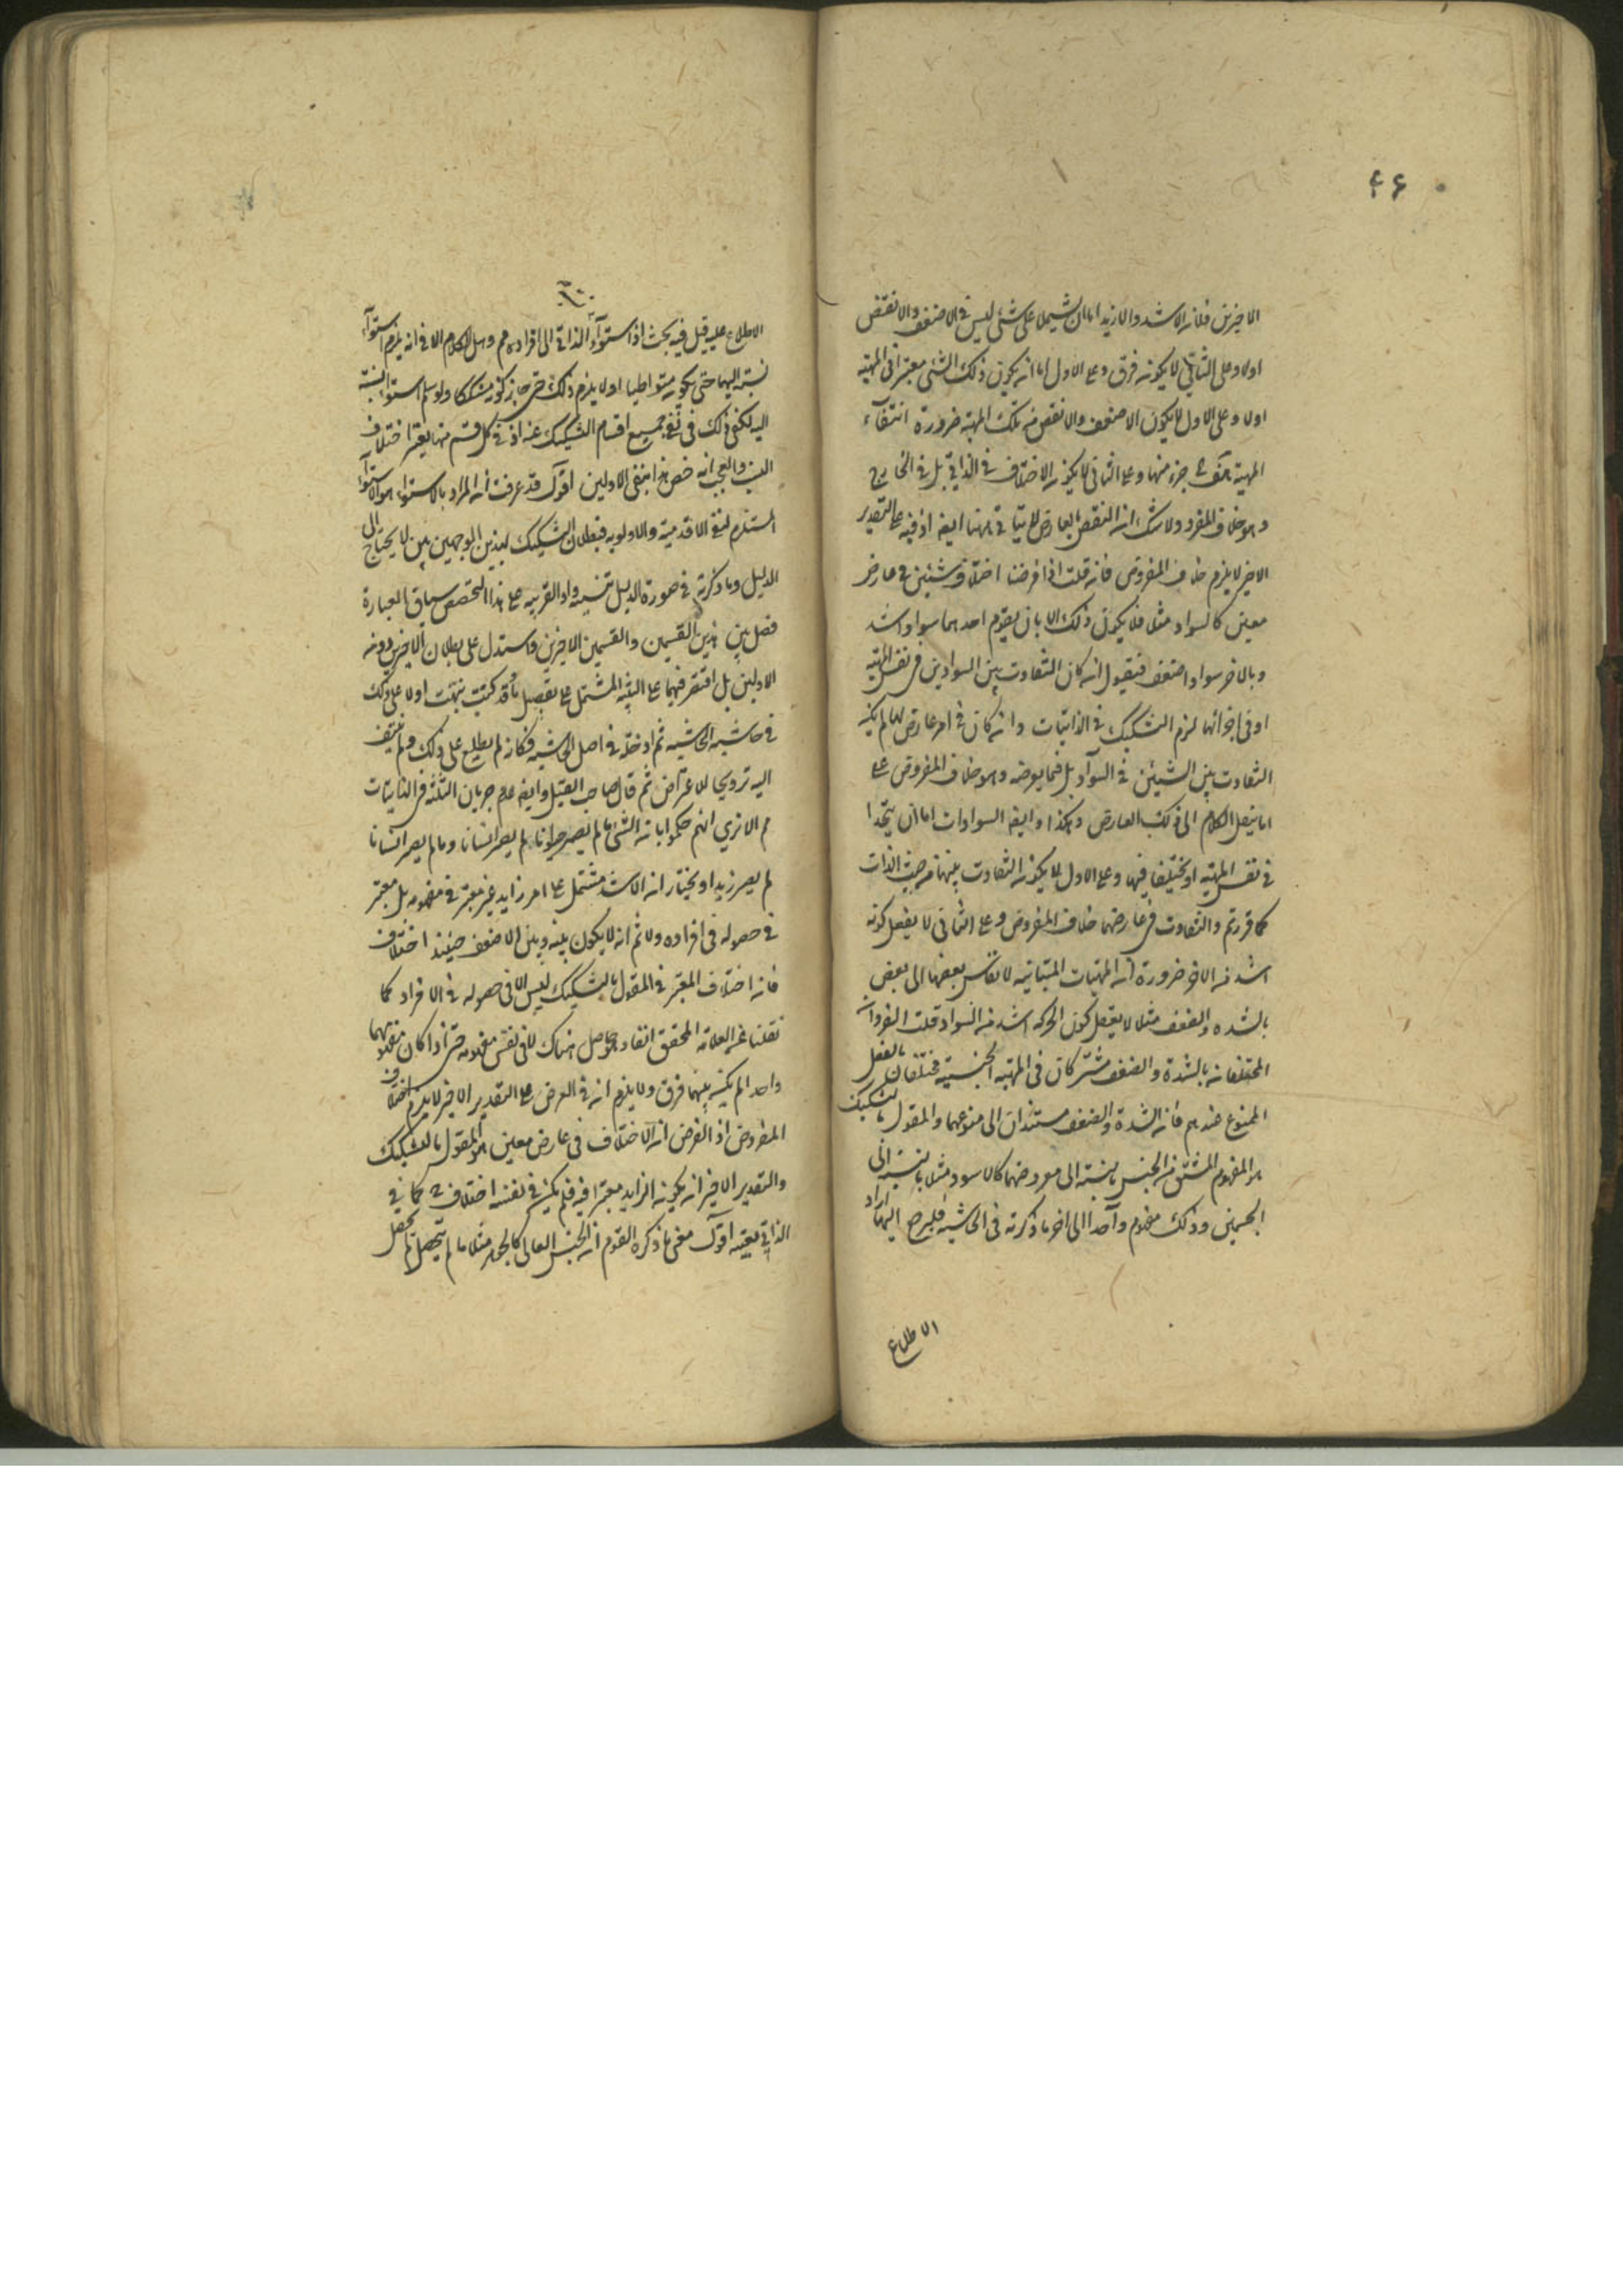 ۴۶
الاخيرين فلانه الاشد والازيد اما ان يشتمل على شئ ليس في الاضعف والانقص
اولا وعلى الثاني لا يكون فرق وعلى الاول اما ان يكون ذلك الشئ معتبرا في المهية
اولا وعلى الاول لا يكون الاضعف والانقص من تلك المهية ضرورة انتفاء
المهية بانتفاء جزء منها وعلى الثاني لا يكون الاختلاف في الذاتي بل في الخارج
وهو خلاف المفروض ولا شك ان النقض بالعارض لا يتأتى ههنا ايضا اذ فيه على التقدير
الاخير لا يلزم خلاف المفروض فان قلت اذا فرضنا اختلاف شيئين في عارض
معين كالسواد مثلا فلا يمكن ذلك الا بان يقوم احدهما سواد اشد
وبالاخر سواد اضعف فنقول ان كان التفاوت بين السوادين في نفس المهية
او في اجزائها لزم التشكيك في الذاتيات وان كان في امر عارض لها لم يكن
التفاوت بين الشيئين في السواد بل فيما يعرضه وهو خلاف المفروض على
انا ننقل الكلام الى ذلك العارض وهكذا وايضا السوادات اما ان يتحدا
في نفس المهية او يختلفا فيها وعلى الاول لا يكون التفاوت بينهما من حيث الذات
كما قررتم والتفاوت في عارضهما خلاف المفروض وعلى الثاني لا يعقل كونه
اشد من الاخر ضرورة ان المهيات المتباينة لا تقاس بعضها الى بعض
بالشدة والضعف مثلا لا يعقل كون الحركة اشد من السواد قلت الفردان
المختلفان بالشدة والضعف مشتركان في المهية الجنسية مختلفان بالفصل
المنوع عندهم فان الشدة والضعف مستندان الى منوعهما والمقول بالتشكيك
هو المفهوم المشتق من الجنس بالنسبة الى معروضهما كالاسود مثلا بالنسبة الى
الجسمين وذلك مفهوم واحد الى اخر ما ذكرته في الحاشية فليرجع اليها من اراد
الاطلاع
الاطلاع عليه قيل فيه بحث اذ استواء الذاتي الى افراده مم وهل الكلام الا في انه يلزم استواء
نسبته اليها حتى يكون متواطيا اولا يلزم ذلك حتى جاز كونه مشككا ولو سلم استواء النسبة
اليه لكفى ذلك في نفي جميع اقسام التشكيك عنه اذ في كل قسم منها يعتبر اختلاف
النسب والعجب انه خص هذا بنفي الاولين اقول قد عرفت ان المراد بالاستواء هو الاستواء
المستلزم لنفي الاقدمية والاولوية فبطلان التشكيك بهذين الوجهين بين لا يحتاج الى
الدليل وما ذكرته في صورة الدليل تنبيه والقرينة على هذا التخصيص سياق العبارة
فصل بين هذين القسمين والقسمين الاخيرين واستدل على بطلان الاخيرين دونه
الاولين بل اقتصر فيهما على التنبيه المشتمل على تفصيل ما وقد كتبت نبهت اولا على ذلك
في حاشية الحاشية ثم ادخلته في اصل الحاشية فكانه لم يطلع على ذلك ولم يلتفت
اليه ترويجا للاعتراض ثم قال صاحب القيل وايضا عدم جريان الثلثة في الذاتيات
مم الا ترى انهم حكموا بان الشئ ما لم يصر حيوانا لم يصر انسانا وما لم يصر انسانا
لم يصر زيدا ويختار ان الاشد مشتمل على امر زايد غير معتبر في مفهومه بل معتبر
في حصوله في افراده ولا ثم انه لا يكون بينه وبين الاضعف حينئذ اختلاف
فان اختلاف المعتبر في المقول بالتشكيك ليس الا في حصوله في الافراد كما
نقلنا عن العلامة المحقق انفا وهو حاصل هناك لا في نفس مفهومه حتى اذا كان مفهومهما
واحدا لم يكن بينهما فرق ولا يلزم انه في العرض على التقدير الاخير لا يلزم خلاف
المفروض اذ الفرض ان الاختلاف في عارض معين هو المقول بالتشكيك
والتقدير الاخير ان يكون الزايد معتبرا فيه فلم يكن في نفسه اختلاف كما في
الذاتي بعينه اقول معنى ما ذكره القوم ان الجنس العالي كالجوهر مثلا ما لم يتحصل لم يحصل